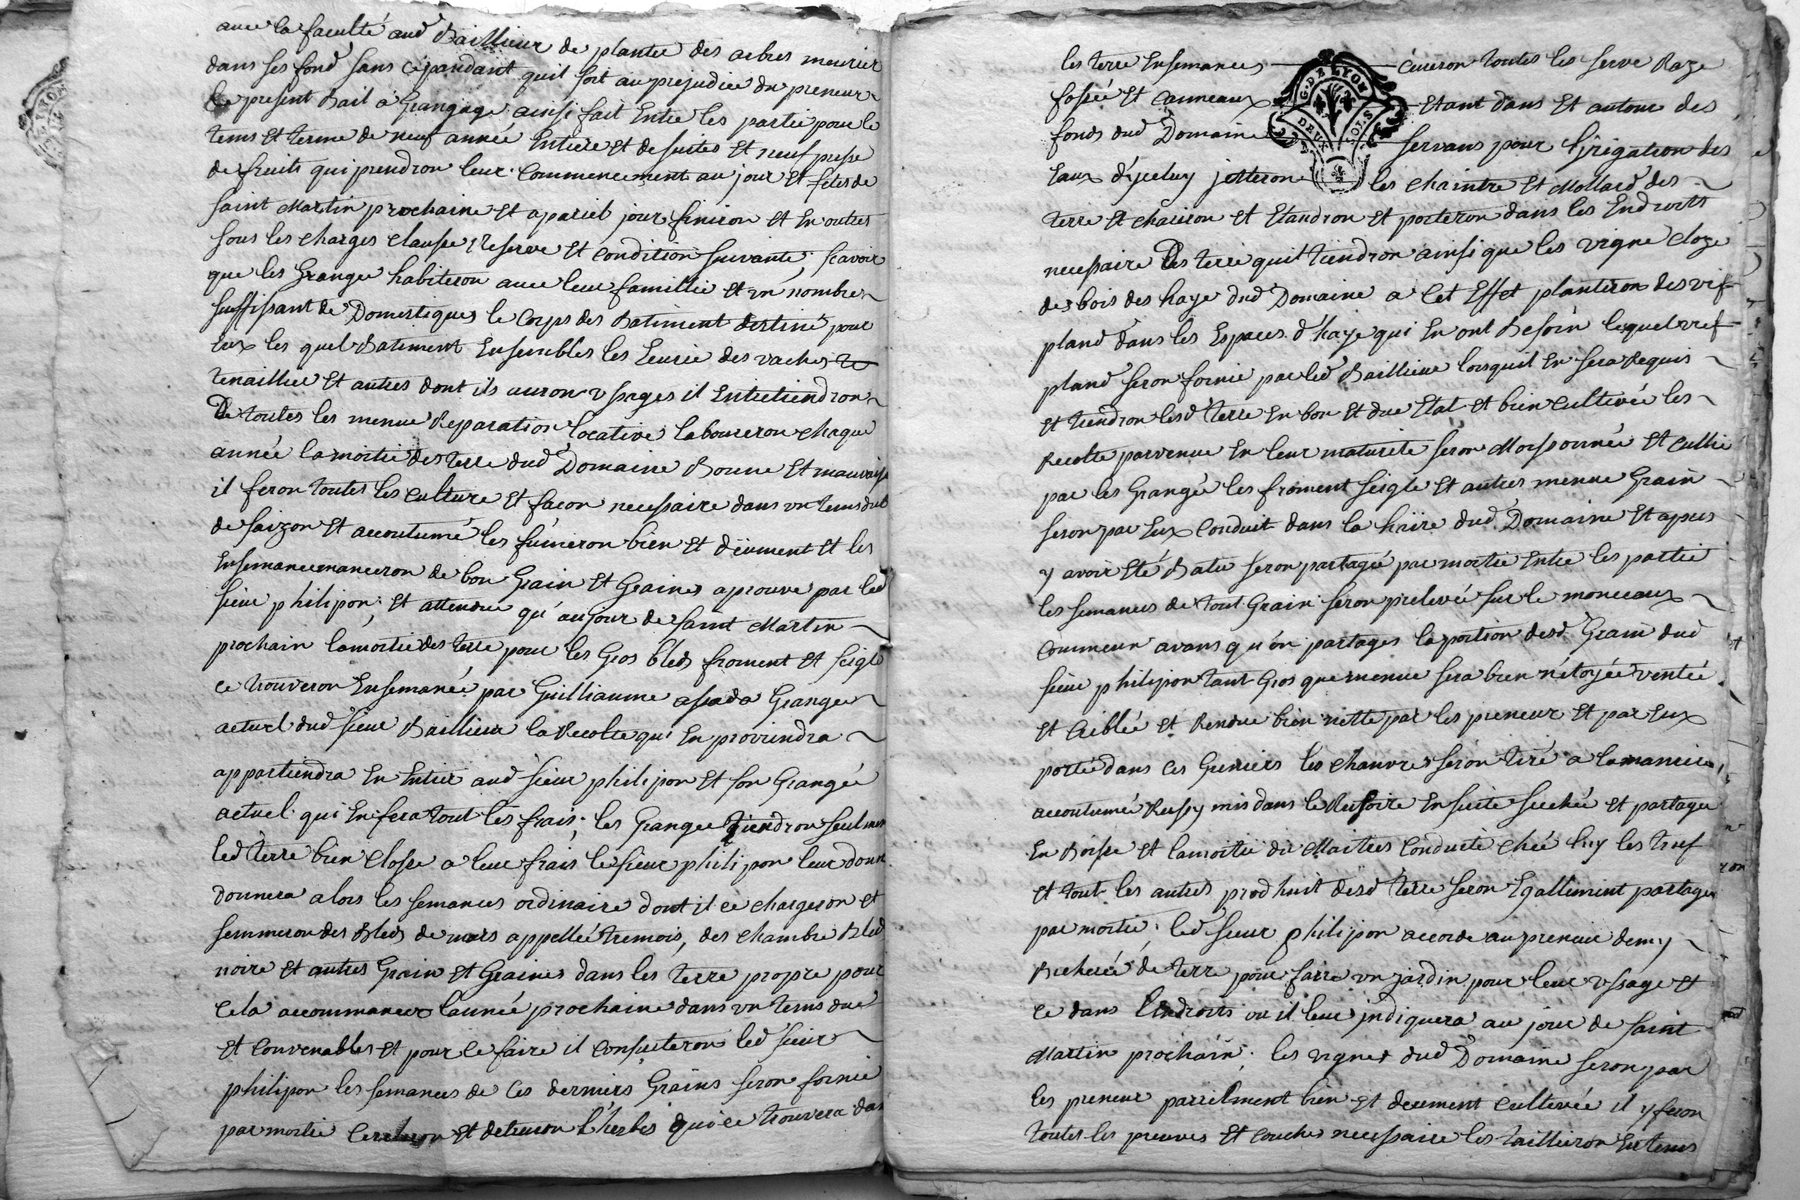 avec la faculté aud Baillieur de planter des arbres meurier
dans ses fond sans cepandant quil soit au prejudice du preneur
le present Bail a Grangage ainsi fait Entre les partie pour le
tems Et terme de neuf année Entiere et de suites Et neuf prise
de fruits qui prendron leur commencement au jour Et fêtes de
saint Martin prochaine Et a pariel jour finiron Et En outres
sous les charges clause reserve Et condition suivante, scavoir
que les Granger habiteron avec leur famillie Et un nombre
suffissant de Domestiques le corps des Batiment destiné pour
Eux les quel Batiment Ensembles les Ecurie des vaches
tenaillier Et autres dont ils auron usages il Entretiendron
De toutes les menue Reparation locative laboureron chaque
année la moitié des terre dud Domaine Bonne Et mauvaise
il feron toutes les culture Et facon necessaire dans un tems dub
de saizon Et accoutumé les fumeron bien Et düement Et les
Ensemancemanceron de bon Grain Et Graines aprouve par led
sieur philipon, Et attendue qu'au jour de saint Martin
prochain la moitié des terre pour les Gros bleds froment Et seigle
ce trouveron Ensemancée par Guilliaume Granger
actuel dud sieur Baillieur la Recolte qui En proviendra
appartiendra En Entier aud sieur philipon Et son Grangé
actuel qui En fera tout les frais; les Granger tiendron seulment
led terre bien closse a leur frais le sieur philipon leur donn
donnera alors les semances ordinaire dont il ce chargeron Et
semmeron des Bleds de mars appellée tremois, des chambre Bled
noire Et autres Grain Et Graines dans les terre propre pour
cela accommancer l'année prochaine dans un tems due
Et convenables Et pour ce faire il consulteron led sieur
philipon les semances de ces derniers Grains seron fornie
par moitié Et detruiron l'herbes qui ce trouvera dan
les terre Ensemances cureron toutes les serve Raze
fossée Et canneaux Etant dans Et autour des
G. DE LYON
DEUX SOLS
fonds dud Domaine servans pour l'irigation des
Eaux d'yceluy jetteron les chaintre Et Mollard des
terre Et chariron Et Etandron Et porteron dans les Endroits
necessaire Des terre quil tiendron ainsi que les vigne cloze
des bois des haye dud Domaine a cet Effet planteron des vif
pland dans les Espaces d'haye qui En ont Besoin lequel vif
pland seron fornie par led Baillieur lorsquil En sera Requis
Et tiendron lesd terre En bon Et due Etat Et bien cultivée les
Recolte parvenue En leur maturité seron Moissonnée Et cullie
par les Grangée les froment seigle Et autres menue Grain
seron par Eux conduit dans la haire dud Domaine Et apres
y avoir Eté Batu seron partagé par moitié Entre les partie
les semances de tout Grain seron prelevée sur le monceaux
commeun avans qu'on partages la portion desd Grain dud
sieur philipon tant Gros que menue sera bien nétoyée ventée
Et criblée Et Rendue bien nette par les preneur Et par Eux
portée dans ces Greniers les chanvre seron tiré a la maniere
accoutumée Ensuite sechée Et partager
En Boisse Et la moitié du Maitres conduite chée luy les truf
Et tout les autres prodhuit desd terre seron Egallement partager
par moitié; led sieur philipon accorde au preneur demy
Bicherée de terre pour faire un jardin pour leur ussage Et
ce dans l'Endroits ou il leur jndiquera au jour de saint
Martin prochain; les vignes dud Domaine seron par
les preneur pareilment bien Et deument cultivée il y feron
toutes les preuves Et couches necessaire les taillieron En tems